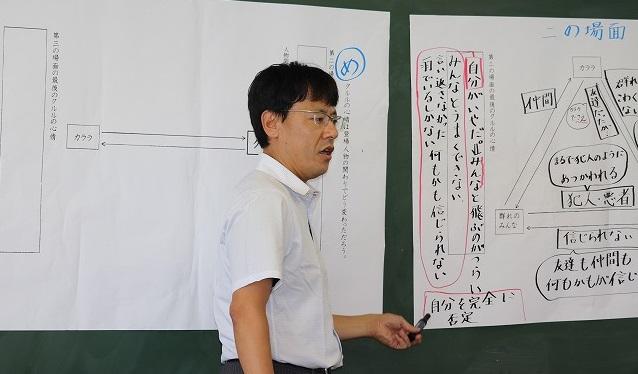 二の場面
第二の場面の最後のクルルの心情
自分がいやだ。みんなと飛ぶのがつらい
みんなとうまくできない
言い返さなかった
何もかも信じられない
自分を完全に
否定
カララ
仲間
友達
群れのみんな
まるで犯人のように
あつかわれる
犯人・悪者
信じられない
友達も仲間も
何もかもが信じ
め
クルルの心情は登場人物の関わりでどう変わっただろう。
第三の場面の最後のクルルの心情
カララ